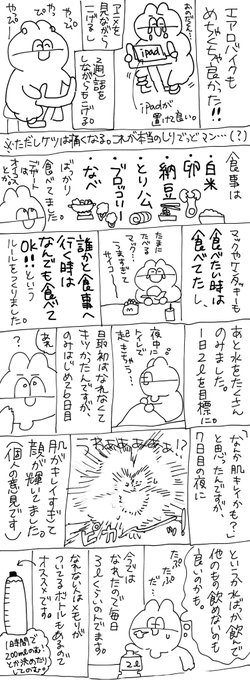 エアロバイクも
めちゃくちゃ良かった!!
iPad
iPadが
置けて良い。
アニメを
見ながら
こげるし
通話を
しながらもこげる
やっぴ
やっぴ
※ただしケツは痛くなる。これが本当のしりでっどマン…(?)
食事は
・白米
・卵
・納豆
・とりハム
・ブロッコリー
・なべ
ばっかり
食べてました。
マックやケンタッキーも
食べたい時は
食べてたし、
誰かと食事へ
行く時は
なんでも食べて
OK!!という
ルールをつくりました。
たまに
たべる
マック…
うますぎて
サイコー
あと水をたくさん
のみました。
1日2ℓを目標に。
夜中に
トイレで
起きちゃう…
最初はなれなくて
キツかったんですが、
のみはじめて6日目
?
あれ
「なんか肌キレイかも?」
と思ったんですが、
7日目の夜に
うわぁぁぁぁぁ!?
肌がキレイすぎて
顔が輝いてました。
(個人の意見です)
というか水ばっか飲んで
他のもの飲めないのも
良いのかも。
たぷ
たぷ
だ…
2ℓ
今では
なれたので毎日
3ℓくらいのんでます。
なれない人はメモリが
ついてるボトルもあるので
オススメです。
1時間で
200mlのむ…
とか決めたり
してたのむ。